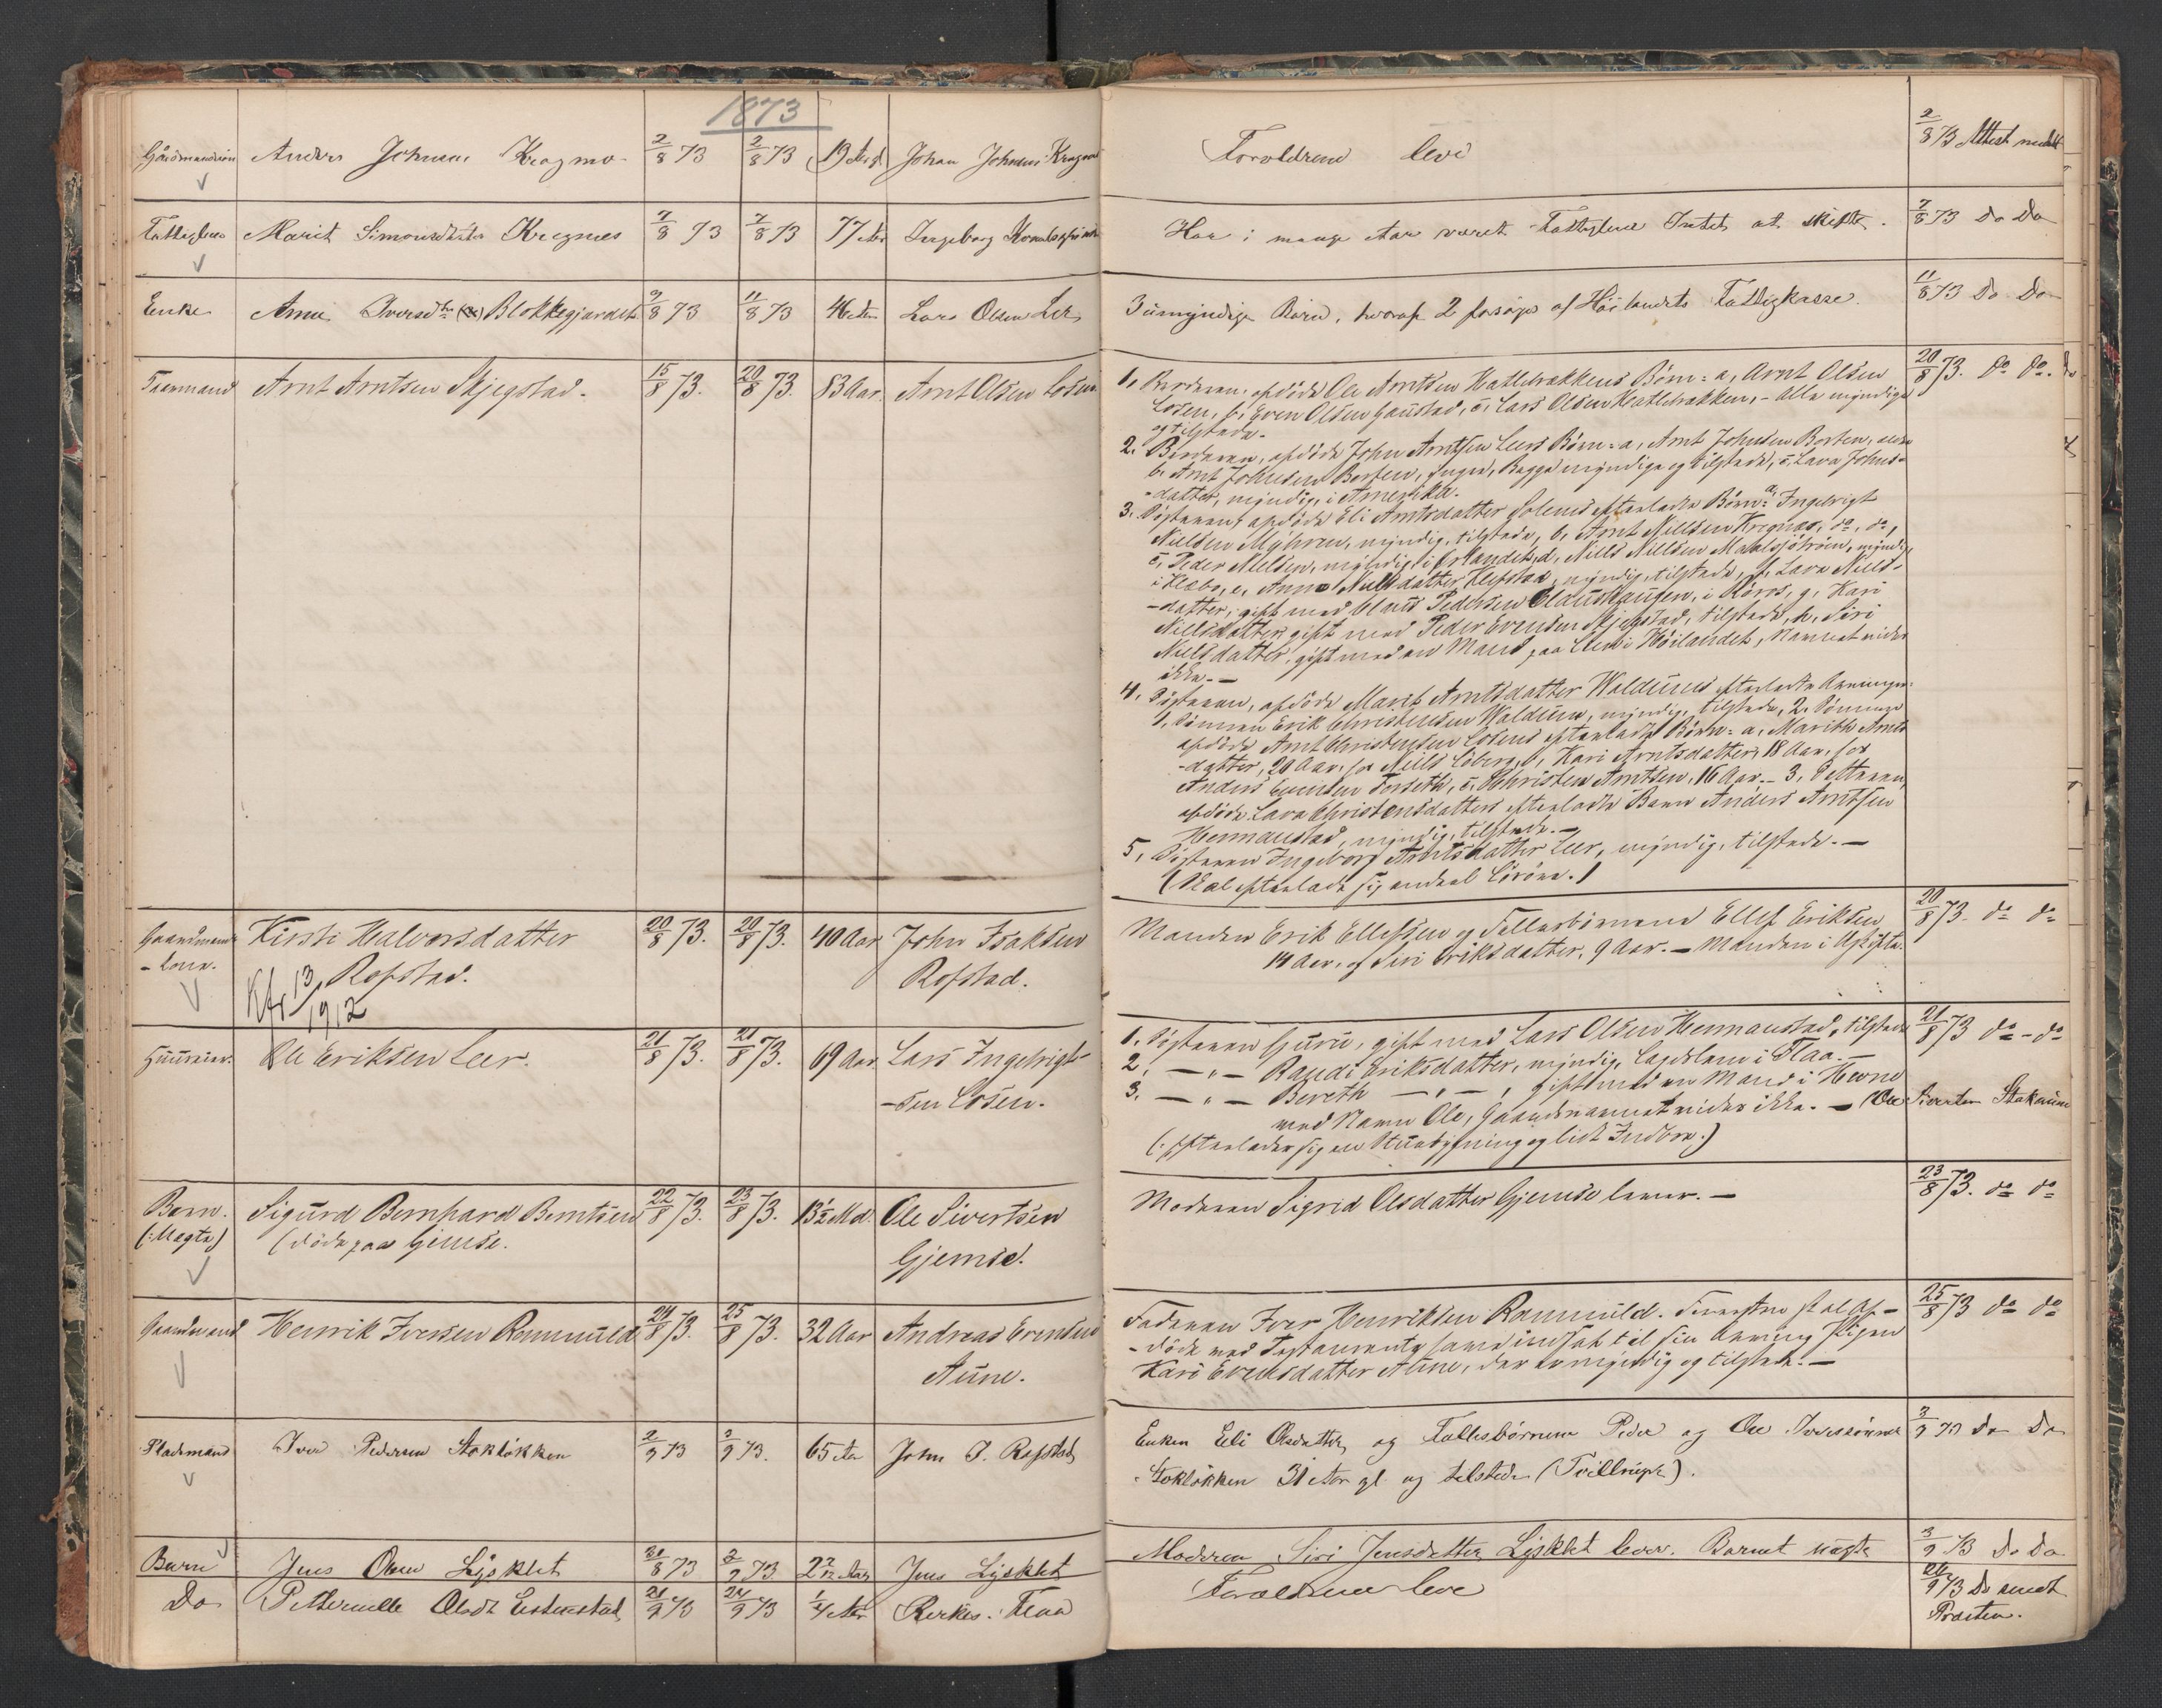 1873
Gaardmandssøn Anders Johnsen Kragmo 2/8 73 2/8 73 19 Aar Johan Johnsen Kragmo Forældrene leve 2/8 73 Attest meddelt
Fattiglem Marit Simonsdatter Kregnes 7/8 73 7/8 73 77 Aar Ingeborg Har i mange Aar været Fattiglem Intet at skifte. 7/8 73 Do Do
Enke Anne Iversdtr Blokkegjærdet 9/8 73 11/8 73 46 Aar Lars Olsen Ler 3 umyndige Børn, hvoraf 2 forsørges af Høilandets Fattigkasse. 11/8 73 Do Do
Arnt Arntsen Skjegstad. 15/8 73. 20/8 73. 83 Aar. Arnt Olsen Losen 20/8 73. do do.
1, Broderen, afdøde Ole Arntsen Katlebrækkens Børn: a, Arnt Olsen
Losen, b, Even Olsen Gaustad, c, Lars Olsen Katlebrækken, - Alle myndige
og tilstede.
2. Broderen, afdøde John Arntsen Leers Børn: a, Arnt Johnsen Borten,
b. Arnt Johnsen Borten, yngre, Begge myndige og tilstede, c, Lava Johns-
-datter, myndig, i Amerika.
3. Søsteren, afdøde Eli Arntsdatter Solems efterladte Børn: a, Ingebrigt
Nielsen Myhren, myndig, tilstede, b, Arnt Nielsen Kregnes, do, do,
c, Peder Nielsen, myndig, i Ørlandet, d, Niels Nielsen, myndig,
i Klæbo, e, Anne Nielsdatter, myndig, tilstede, f, Lava Niels-
-datter, gift med Claus Pedersen Claushaugen, i Røros, g, Kari
Nielsdatter, gift med Peder Evensen Skjegstad, tilstede, h, Siri
Nielsdatter, gift med en Mand paa i Høilandet, Navnet vides
ikke. -
4. Søsteren, afdøde Marit Arntsdatter Walduns efterladte Arvinger:
1, Sønnen Erik Christensen Waldum, myndig, tilstede, 2, Sønnen
afdøde Arnt Christensen Losens efterladte Børn: a, Marith Arnts
-datter, 20 Aar, hos Niels Løberg, b, Kari Arntsdatter, 18 Aar, hos
Anders Evensen Forseth, c, Christen Arntsen, 16 Aar. - 3, Datteren,
afdøde Lava Christensdatters efterladte Barn Anders Arntsen
Hermanstad, myndig, tilstede. -
5, Søsteren Ingeborg Arntsdatter Leer, myndig, tilstede. -
(Skal efterlade sig endeel Løsøre.)
Gaardmands-
-kone. Kirsti Halvorsdatter 20/8 73. 20/8 73. 40 Aar John Isaksen Manden Erik Ellefsen og Fellesbørnene Ellef Eriksen 20/8 73. do do
Rofstad. Rofstad. 14 Aar, og Siri Eriksdatter, 9 Aar. - Manden i Uskifte.
Kfr 13/ 1912
Huusmand. Ole Eriksen Leer. 21/8 73. 21/8 73. 69 Aar. Lars Ingebrigt-
-sen Losen.
1. Søsteren Guru, gift med Lars Olsen Hermanstad, tilstede 21/8 73 do - do
2, - " - Randi Eriksdatter, myndig, Lægdslem i Flaa. -
3. - " - Bereth - " -, gift med en Mand i Hevne
med Navn Ole, Gaardsnavnet vides ikke. - (Ole Sivertsen Stakaune
(: efterlader sig en Stuebygning og lidt Indbo.)
Barn.
(:Uægte) Sigurd Bernhard Berntsen 22/8 73. 23/8 73. 13½ Md. Ole Sivertsen Moderen Sigrid Olsdatter Gjemse lever. - 23/8 73. do do
(døde paa Gjemse. Gjemse.
Gaardmand Henrik Iversen Rammuld 24/8 73. 25/8 73. 32 Aar Andreas Evensen 25/8 73 do do
Aune.
Faderen Iver Henriksen Rammuld. Forresten skal Af-
-døde ved Testamente have indsat til sin Arving Pigen
Kari Evensdatter Aune, der er myndig og tilstede. -
Pladsmand Iver Pedersen Stokløkken 2/9 73 3/9 73. 65 Aar John I. Rofstad Enken Eli Olsdatter og Fællesbørnene Peder og Ole Iverssønner 3/9 73 Do Do
Stokløkken 31 Aar gl. og tilstede (Tvillinger).
Barn Jens Olsen Lysklet 31/8 73 3/9 73 2 2/12 Aar Jens Lysklet Moderen Siri Jensdatter Lysklet lever. Barnet uægte 3/9 73 Do Do
Do Pethernelle Olsdt Estenstad 21/9 73 24/9 73 1/4 Aar Flaa Forældrene leve 24/9 73 Do sendt
Præsten.